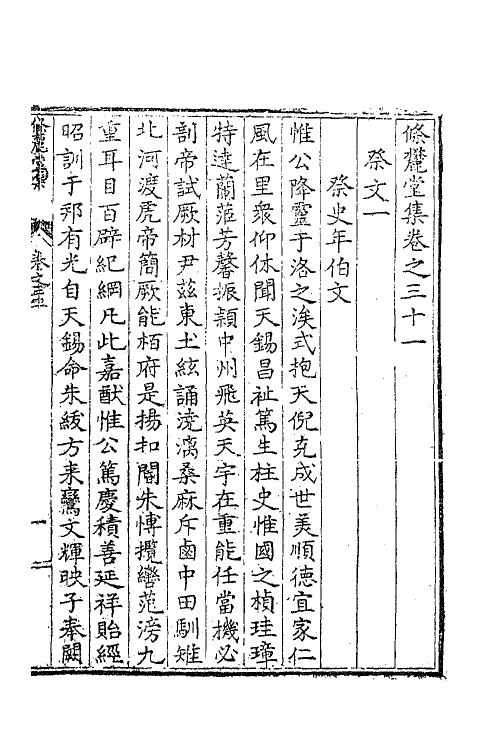 條麓堂集卷之三十一
祭文一
祭史年伯文
惟公降靈于洛之涘式抱天倪克成世美順德宜家仁
風在里衆仰休聞天錫昌祉篤生柱史惟國之楨珪璋
特達蘭茝芳馨振穎中州飛英天宇在重能任當機必
剖帝試厥材尹茲東土絃誦澆漓桑麻斥鹵中田馴雉
北河渡虎帝簡厥能栢府是揚扣閽朱愽攬轡范滂九
重耳目百辟紀綱凡此嘉猷惟公篤慶積善延祥貽經
昭訓于邦有光自天錫命朱紱方来鸞文輝映子奉闕
條麓堂集
卷之三十一
一